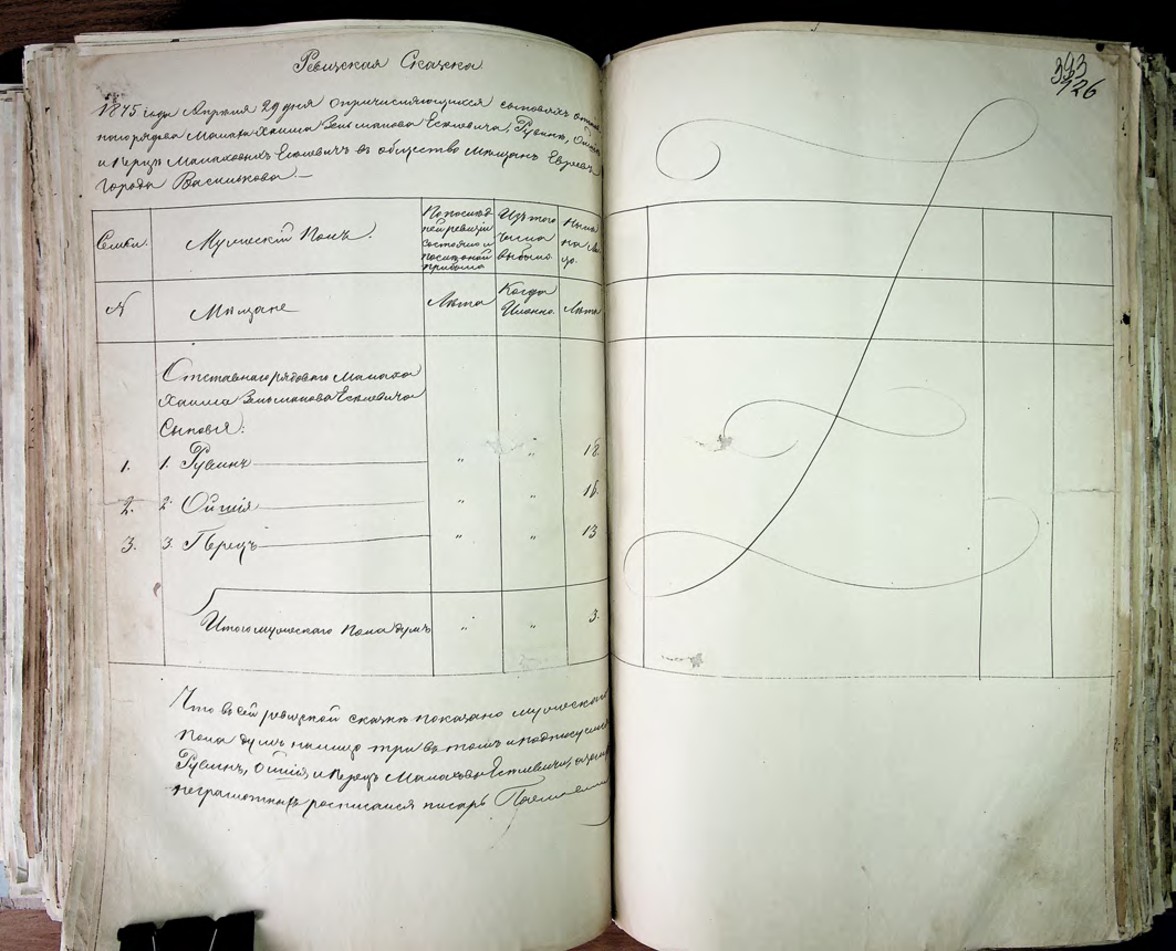 Ревизская Сказка
1875 года Апреля 29 дня о причисляющихся сыновьях отстав-
наго рядоваго Малаха Хаима Зельманова Еселевича, Рувинъ, Ойшія
и Перецъ Малаховичъ Еселевичъ въ общество Мѣщанъ Евреевъ
Города Василькова.
Семьи.
Мужескій Полъ.
По послѣд
ней ревизіи
состояло и
послѣ оной
прибыло
Изъ того
числа
выбыло.
Нынѣ
на ли-
цо.
№
Мѣщане
Лѣта
Когда
Именно.
Лѣта
Отставнаго рядоваго Малаха
Хаима Зельманова Еселевича
Сыновья:
1. 1. Рувинъ „ „ 18.
2. 2. Ойшія „ „ 16.
3. 3. Перецъ „ „ 13
Итого мужескаго пола душъ „ „ 3.
Что въ сей ревизской сказкѣ показано мужескаго
пола душъ налицо три въ томъ и подписуемся
Рувинъ, Ойшія, и Перецъ Малахова Еселевичи, а за
неграмотныхъ росписался писарь
343
126